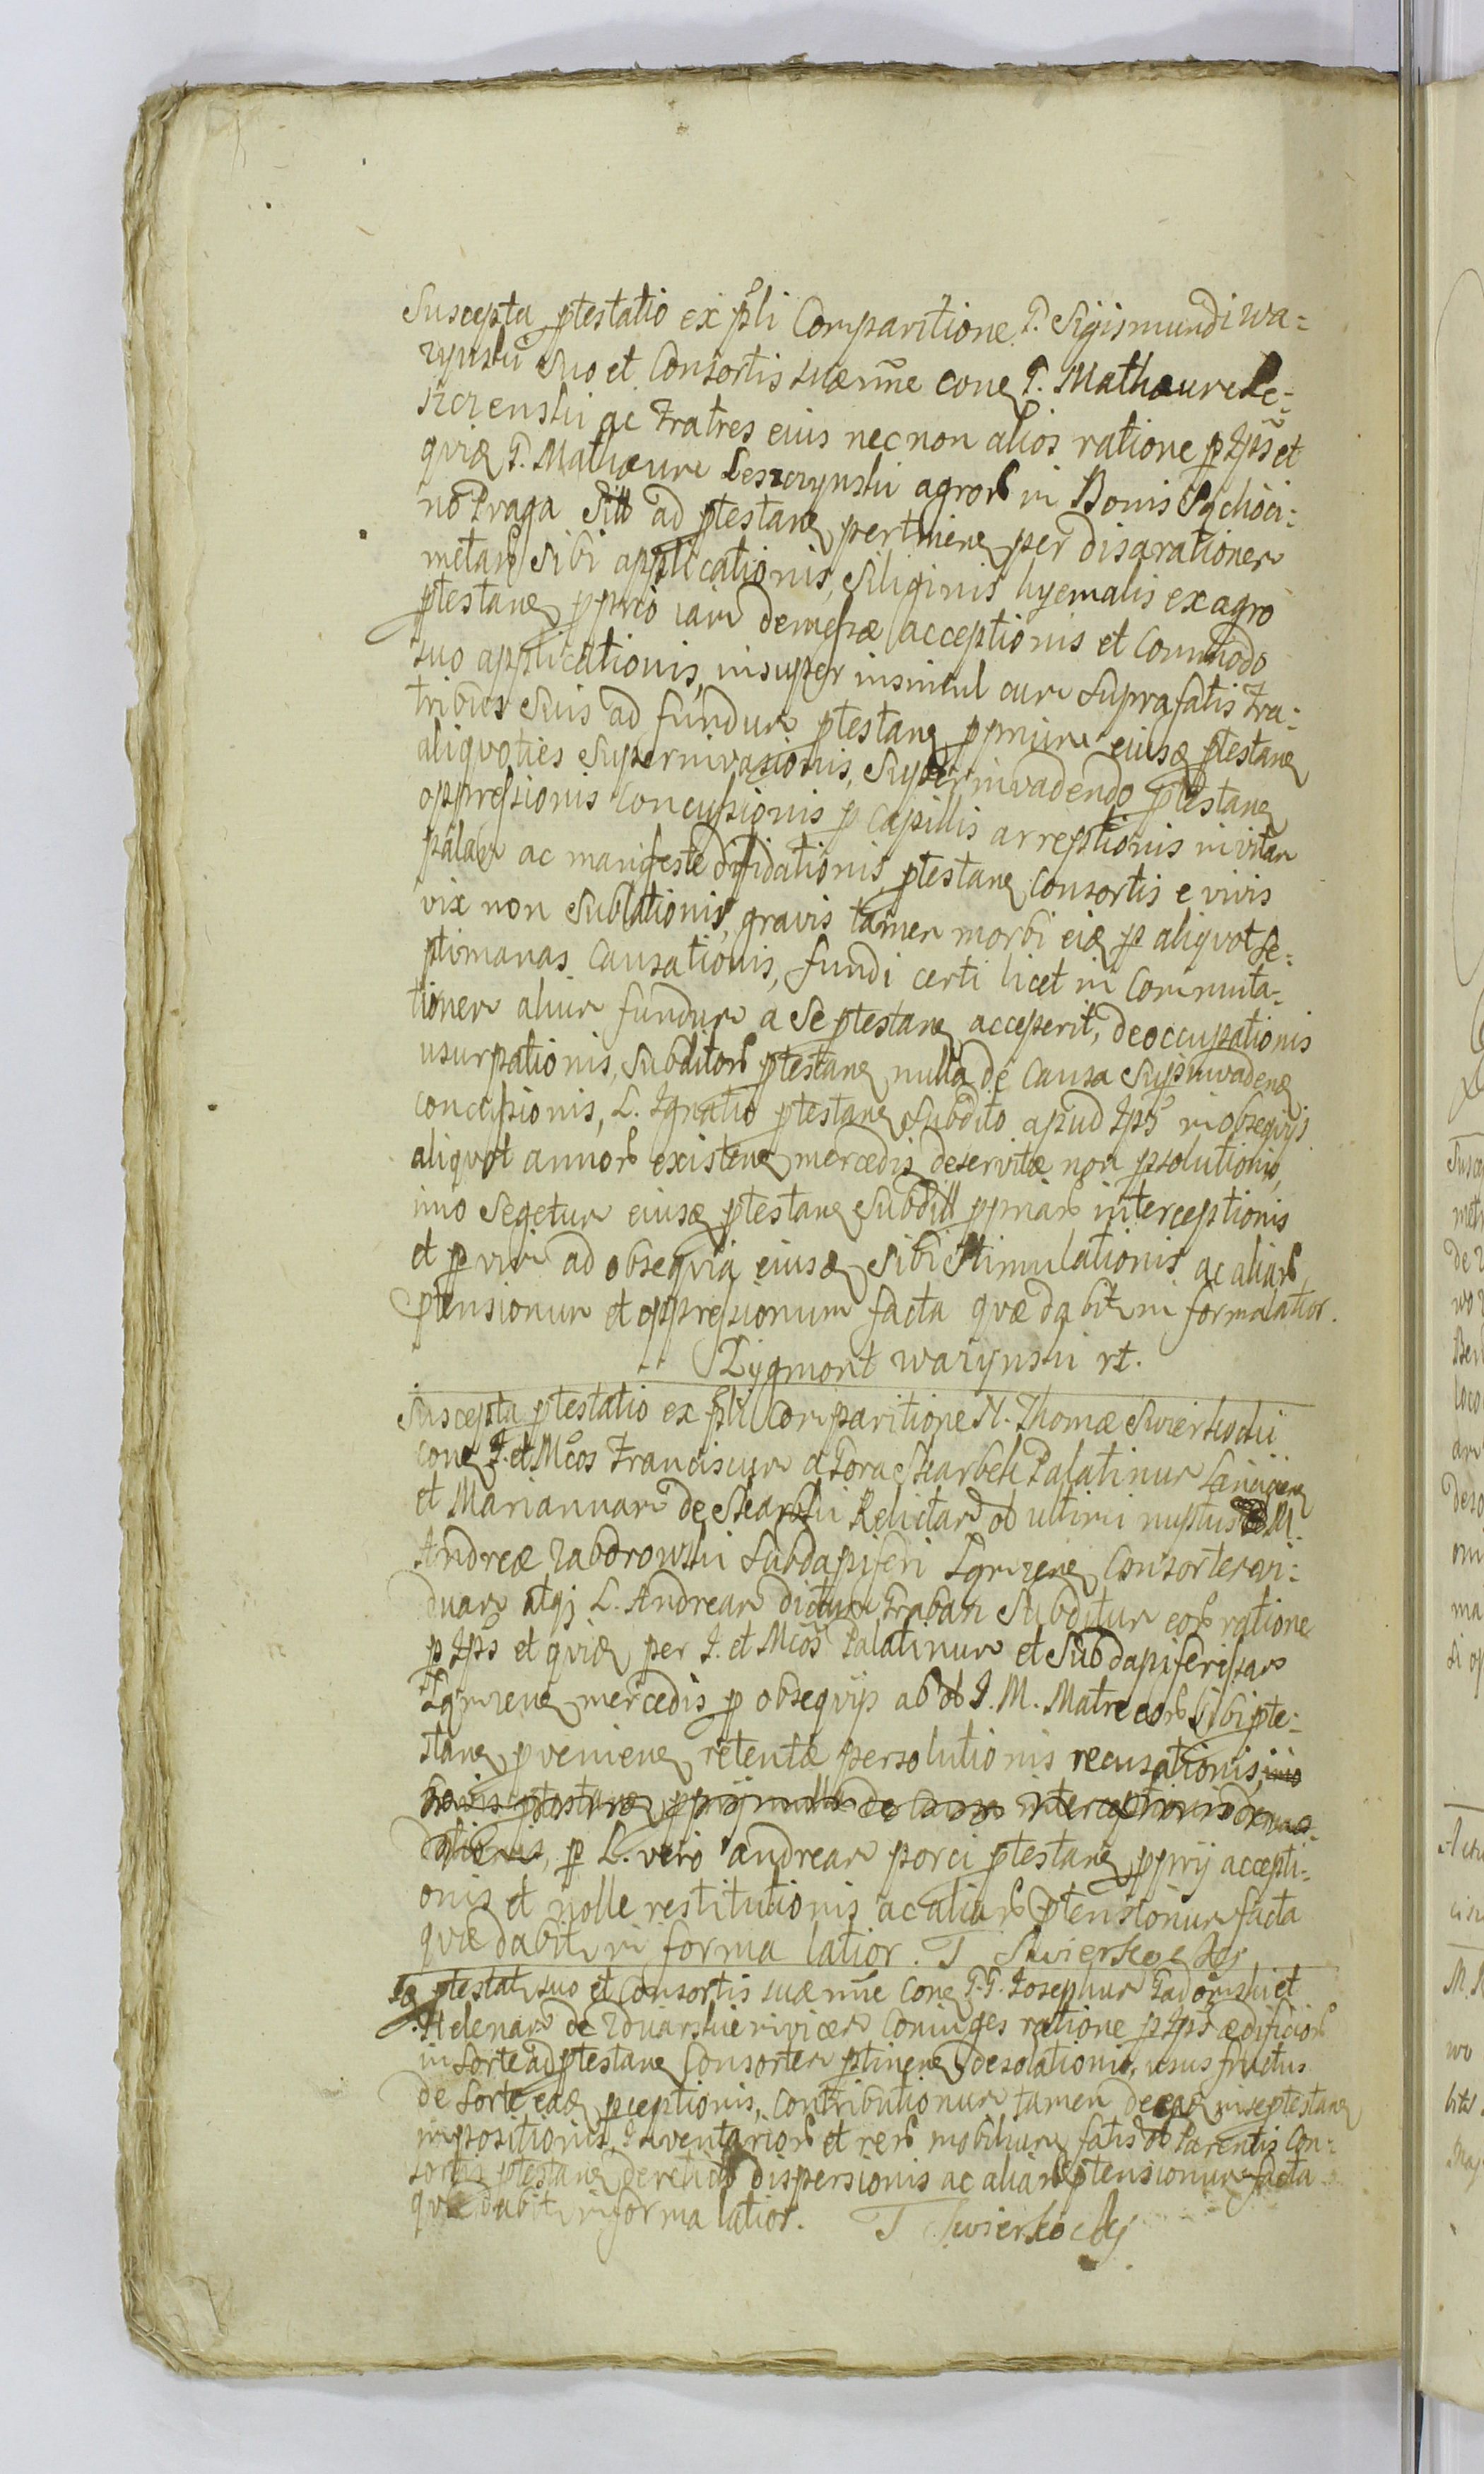 Suscepta ptestatio ex pśli Comparitione G. Sigismundi wa=
rynski suo et Consortis suæ nñe cong G. Mathæum Le=
szczenski ac Fratres eius nec non alios ratione p Ips et
quia G. Mathæum Leszczynski agror in Bonis Sychoci=
no Praga Sitt ad ptestang pertineng per disarationem
metar Sibi applicationis, Siliginis hyemalis ex agro
ptestang pprio iam demessæ acceptionis et Commodo
suo applicationis, insuper insimul cum suprafatis Fra=
tribus Suis ad fundum ptestang pprium eiusq ptestang
aliquoties Superinvasionis, Superinvadendo ptestang
oppressionis Concussionis p Capillis arreptionis in vitam
palam ac manifeste diffidationis, ptestang Consortis e vivis
vix non Sublationis, gravis tamen morbi eiq p aliquot Se=
ptimanas Causationis, fundi certi licet in Commuta=
tionem alium fundum a Se ptestang acceperit, deoccupationis
usurpationis, Subditor ptestang nulla de Causa Supinvadeng
concussionis, L. Ignatio ptestang Subdito apud Ips in obsequijs
aliquot annor existeng mercedis deservitæ non psolutionis,
imo Segetum eiusq ptestang Subditi ppriar interceptionis
et p vim ad obsequia eiusq sibi Stimulationis ac aliar
ptensionum et oppressionum facta quæ dabit in forma latior.
Zygmont warynski rt.
Suscepta ptestatio ex pśli Comparitione N. Thomæ Swierkocki
cong I. et Mcos Franciscum a Gora Skarbek Palatinum Lancicien
et Mariannam de Skarbki Relictam ol ultimi nuptus M.
Andreæ Zaborowski Subdapiferi Zgrzeng Consortes vi=
duam atqj L. Andream dictum Graban Subditum eor ratione
p Ips et quia per I. et Mcos Palatinum et Subdapiferissam
Zgrzeng mercedis p obsequijs ab ol I. M. Matre eor Sibi pte=
stang pveniene retentæ persolutionis recusationis, imo
p L. vero andream porci ptestang pprij accepti=
onis et nolle restitutionis ac aliar ptensionum facta
quæ dabit in forma latior. T Swierkocky
Iq ptestat suo et Consortis suæ nñe Cong G.G. Josephum Gadomski et
Helenam de Zduarskie rivicem Coniuges ratione p Ips ædificior
in sorte ad ptestang Consortem ptineng desolationis, usus fructus
de sorte eadq pceptionis, Contributionum tamen de eaq in se ptestang
impositionis, Inventarior et rer mobilium fatis ol Parentis Con=
sortis ptestang derelict dispersionis ac aliar ptensionum facta
quæ dabit in forma latior. T Swierkocky